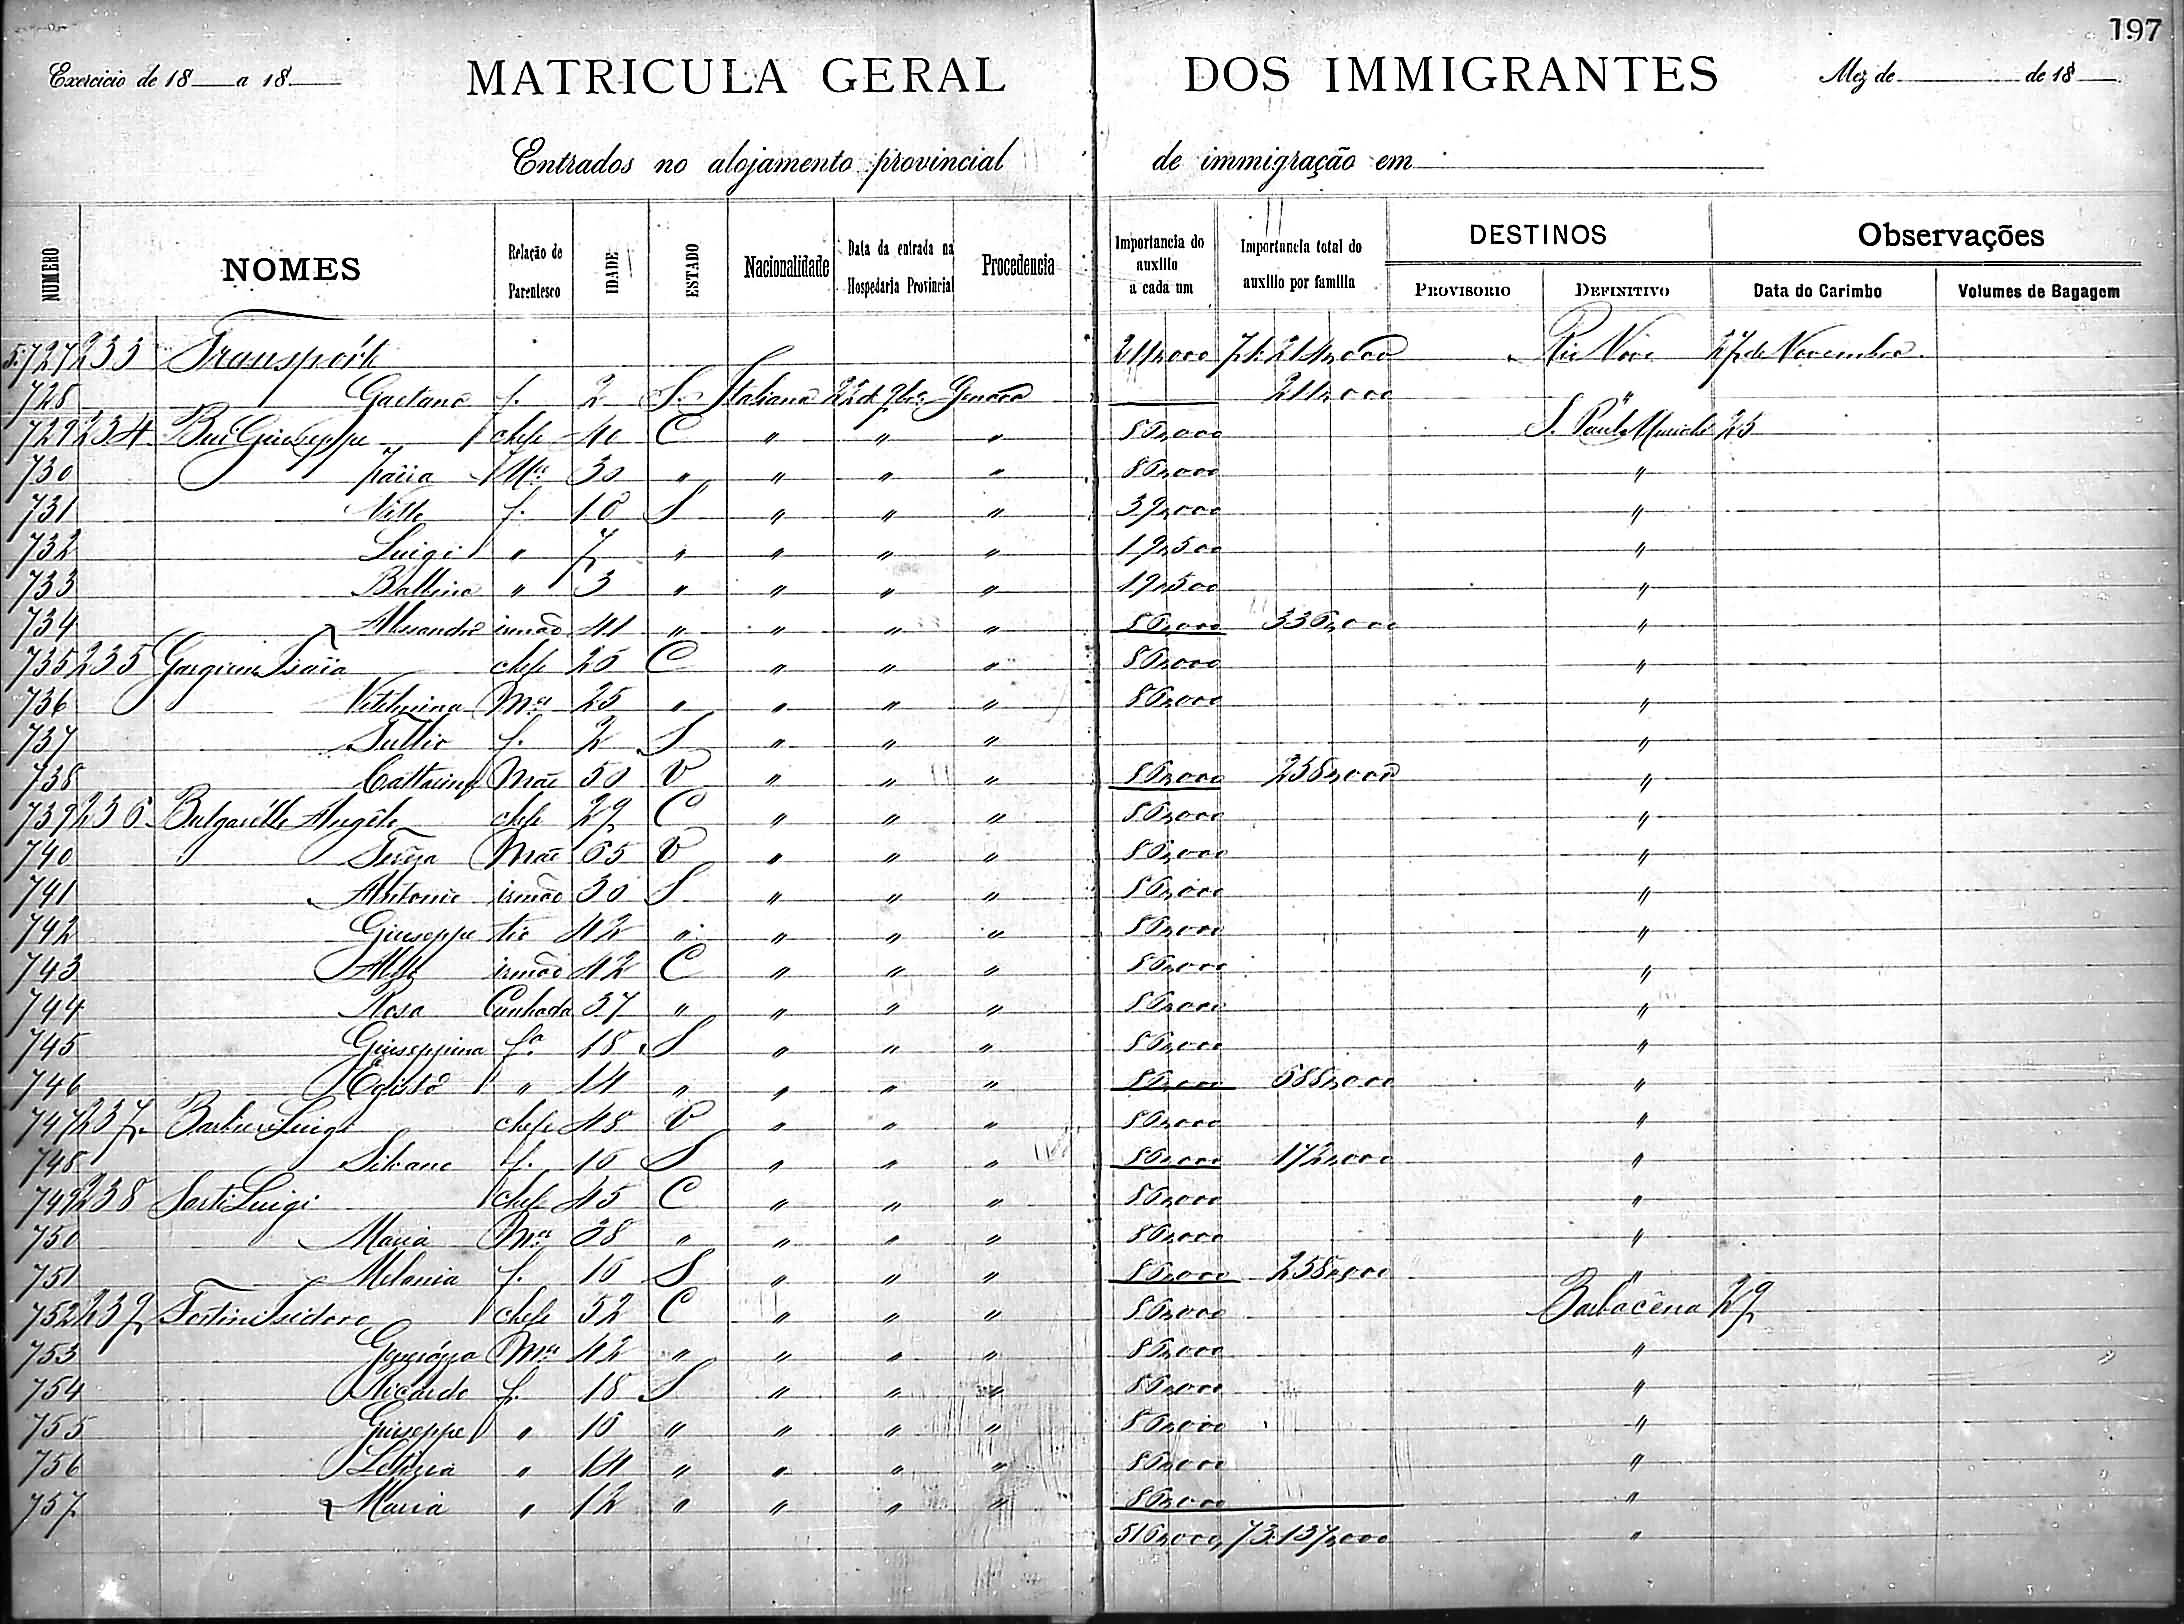 197
Exercicio de 18 a 18 MATRICULA GERAL DOS IMMIGRANTES Mez de de 18
Entrados no alojamento provincial de immigração em
NUMERO NOMES Relação de Parentesco IDADE ESTADO Nacionalidade Data da entrada na Hospedaria Provincial Procedencia Importancia do auxilio a cada um Importancia total do auxilio por familia DESTINOS PROVISORIO DEFINITIVO Observações Data do Carimbo Volumes de Bagagem
5.727 233 Transporte 211,000 Rio Novo 27 de Novembro
728 Gaetano f. 2 S. Italiana 22 de 9bro Genova 211,000 "
729 234 Giuseppe chefe 40 C " " " 86,000 S. Paulo Muriahé 25
730 Mer 30 " " " " 86,000 "
731 f. 10 S " " " 39,000 "
732 Luigi " 7 " " " " 19,500 "
733 Balbina " 3 " " " " 19,500 "
734 Alessandro irmão 41 " " " " 86,000 336,000 "
735 235 Isaia chefe 26 C " " " 86,000 "
736 Mer 25 " " " " 86,000 "
737 Tullio f. 2 S " " " "
738 Catterina Mãe 50 V " " " 86,000 258,000 "
739 236 chefe 29 C " " " 86,000 "
740 Tereza Mãe 65 V " " " 86,000 "
741 Antonio irmão 30 S " " " 86,000 "
742 Giuseppe tio 42 " " " " 86,000 "
743 irmão 42 C " " " 86,000 "
744 Rosa Cunhada 37 " " " " 86,000 "
745 Giuseppina fa. 18 S " " " 86,000 "
746 Egisto " 14 " " " " 86,000 688,000 "
747 237 Barbieri Luigi chefe 48 V " " " 86,000 "
748 Silvano f. 16 S " " " 86,000 172,000 "
749 238 Sarti Luigi chefe 45 C " " " 86,000 "
750 Maria Mer 38 " " " " 86,000 "
751 Melania f. 16 S " " " 86,000 258,000 "
752 239 Fortini Isidoro chefe 52 C " " " 86,000 Barbacêna 29
753 Mer 42 " " " " 86,000 "
754 Ricardo f. 18 S " " " 86,000 "
755 Giuseppe " 16 " " " " 86,000 "
756 Letizia " 14 " " " " 86,000 "
757 Maria " 12 " " " " 86,000 "
516,000 73.137,000 "